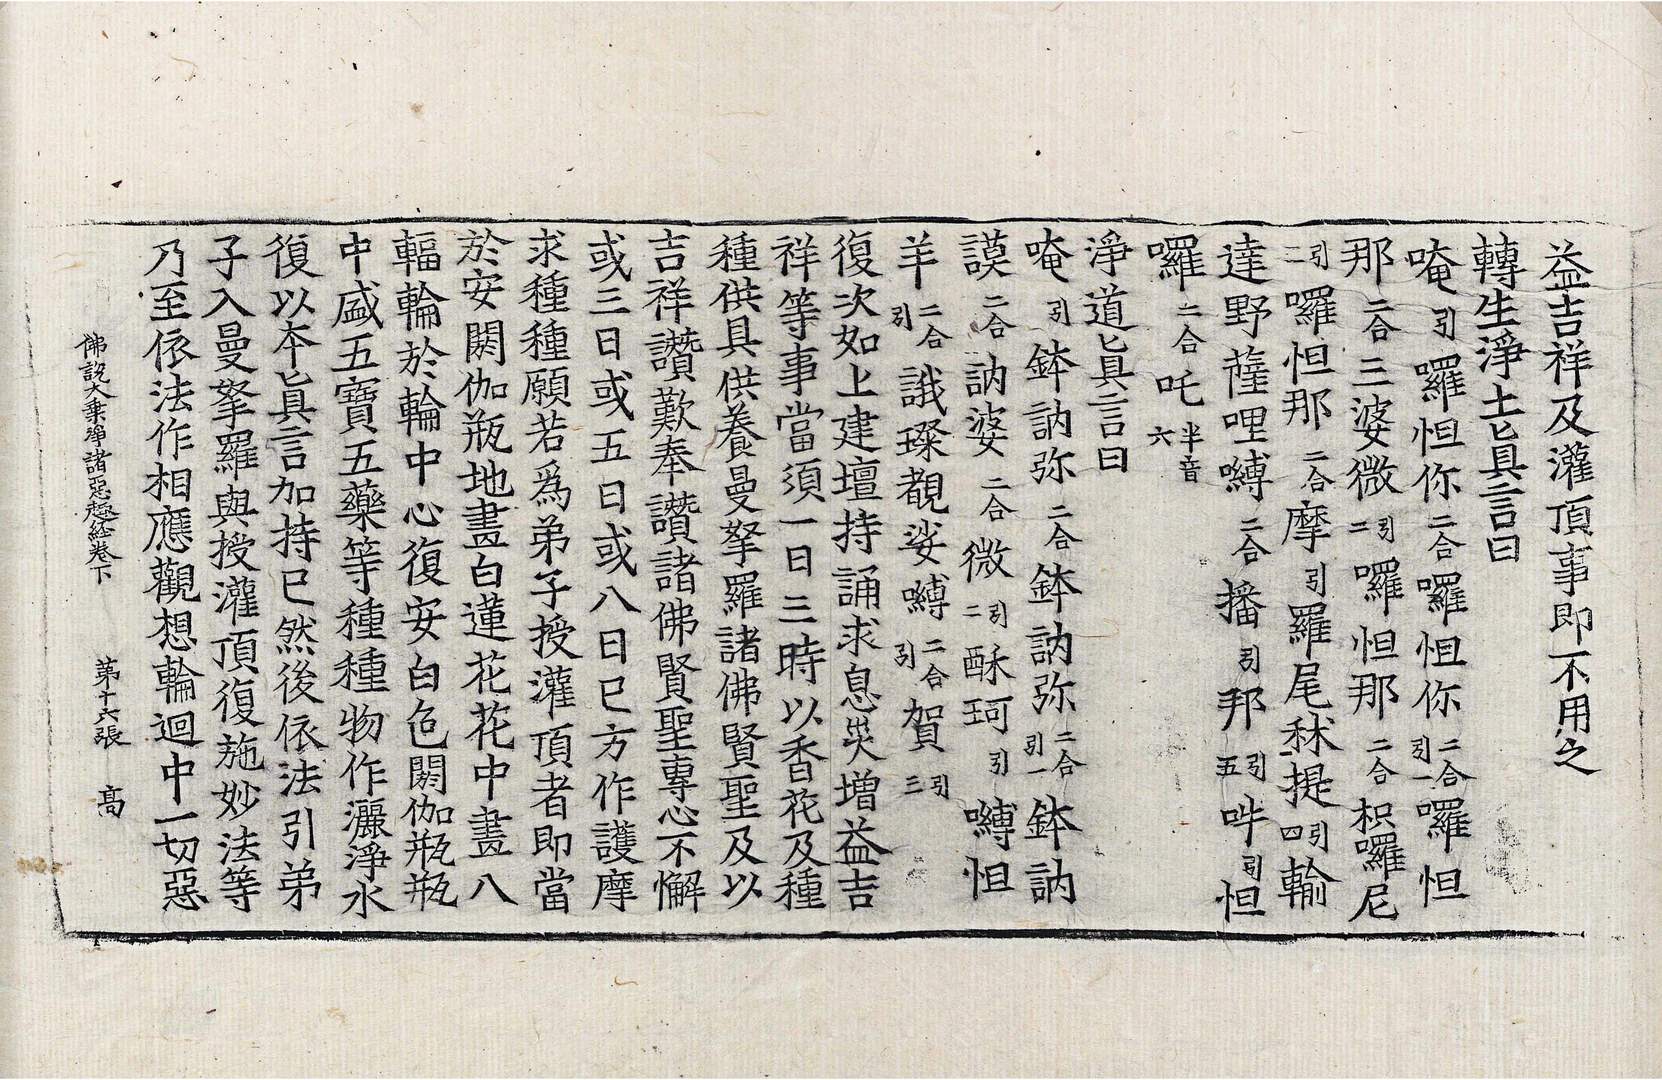 益吉祥及灌頂事即不用之
轉生淨土真言曰
唵引囉怛你二合囉怛你二合引一囉怛
那二合三婆微引二囉怛那二合枳囉尼
引二囉怛那二合摩引羅尾秫提引四輸
達野薩哩嚩二合播引邦引五吽引怛
囉二合吒半音六
淨道真言曰
唵引鉢訥弥二合鉢訥弥二合引一鉢訥
謨二合訥婆二合微引二酥珂引嚩怛
羊二合引誐璨覩娑嚩二合引賀引三
復次如上建壇持誦求息災增益吉
祥等事當須一日三時以香花及種
種供具供養曼拏羅諸佛賢聖及以
吉祥讚歎奉讚諸佛賢聖專心不懈
或三日或五日或八日已方作護摩
求種種願若爲弟子授灌頂者即當
於安閼伽瓶地畫白蓮花花中畫八
輻輪於輪中心復安白色閼伽瓶瓶
中盛五寶五藥等種種物作灑淨水
復以本真言加持已然後依法引弟
子入曼拏羅與授灌頂復施妙法等
乃至依法作相應觀想輪迴中一切惡
佛說大乗淨諸惡趣経卷下 第十六張 高